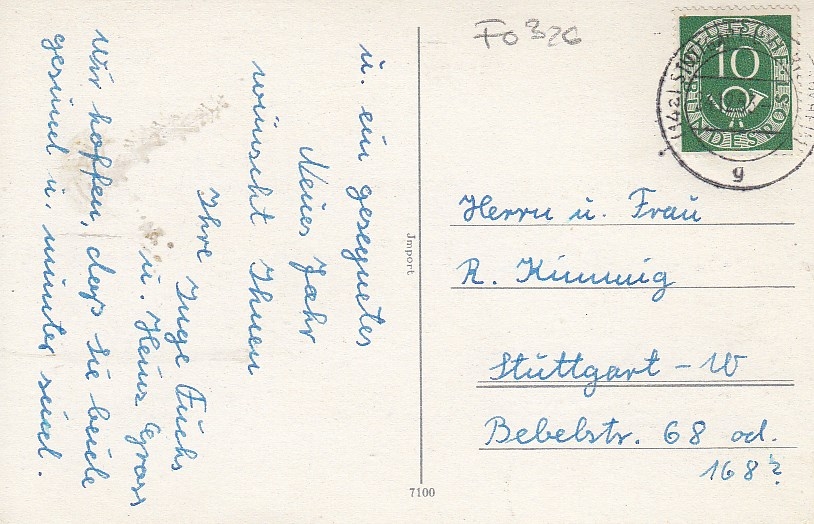 u. ein gesegnetes
Neues Jahr
wünscht Ihnen
Ihre Inge Fuchs
u. Heinz Gross
Wir hoffen, daß Sie beide
gesund u. munter sind.
Import
7100
Fo 320
DEUTSCHE
10
BUNDESPOST
g
Herrn u. Frau
R. Kimmig
Stuttgart - W
Bebelstr. 68 od.
168?